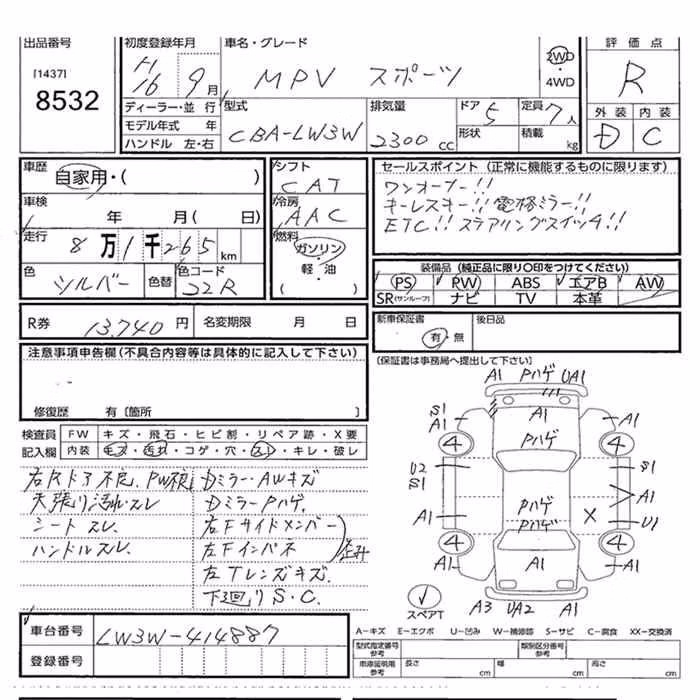 出品番号
[1437]
8532
初度登録年月
H16 年 9 月
ディーラー・並 行
モデル年式 年
ハンドル 左・右
車名・グレード
MPV スポーツ
2WD
・
4WD
型式
CBA-LW3W
排気量
2300 cc
ドア 5
形状
定員 7人
積載 kg
評 価 点
R
外 装 内 装
D C
車歴
自家用・( )
車検
年 月( 日)
走行
8万1千265 km
色
シルバー
色替
色コード
22R
シフト
CAT
冷房
AAC
燃料
ガソリン・
軽・油
( )
セールスポイント (正常に機能するものに限ります)
ワンオーナー!!
キーレスキー!! 電格ミラー!!
ETC!! ステアリングスイッチ!!
装備品 (純正品に限り○印をつけてください)
PS PW ABS エアB AW
SR(サンルーフ) ナビ TV 本革
R券 13,740 円 名変期限 月 日
新車保証書
有・無
後日品
[保証書は事務局へ提出して下さい]
注意事項申告欄(不具合内容等は具体的に記入して下さい)
修復歴 有〔箇所 〕
検査員
記入欄
FW キズ・飛石・ヒビ割・リペア跡・X要
内装 キズ・汚れ・コゲ・穴・スレ・キレ・破レ
右Rドア不良、PW
天張り汚れ スレ
シート スレ
ハンドル スレ
Dミラー・AWキズ
Dミラーハゲ
右Fサイドメンバー
左Fインパネ
歪み
左Tレンズキズ
下廻り S・C.
A1 Pハゲ UA1
S1
A1
A1
Pハゲ
A1
4
4
U2
S1
S1
A1
A1
Pハゲ
Pハゲ
X
U1
4
4
A1
A1
A1
スペアT
A3 UA2 A1
車台番号 LW3W-414887
登録番号
A-キズ E-エクボ U-凹み W-補修跡 S-サビ C-腐食 XX-交換済
型式指定番号
参考
類別区分番号
参考
車庫証明用
参考
長さ cm 幅 cm 高さ cm